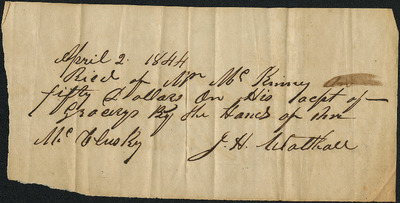 April 2. 1844
Recd of Mr McKinney
fifty Dollars On His acpt of
Grocerys By the Hands of
McClusky J. H. Wathall